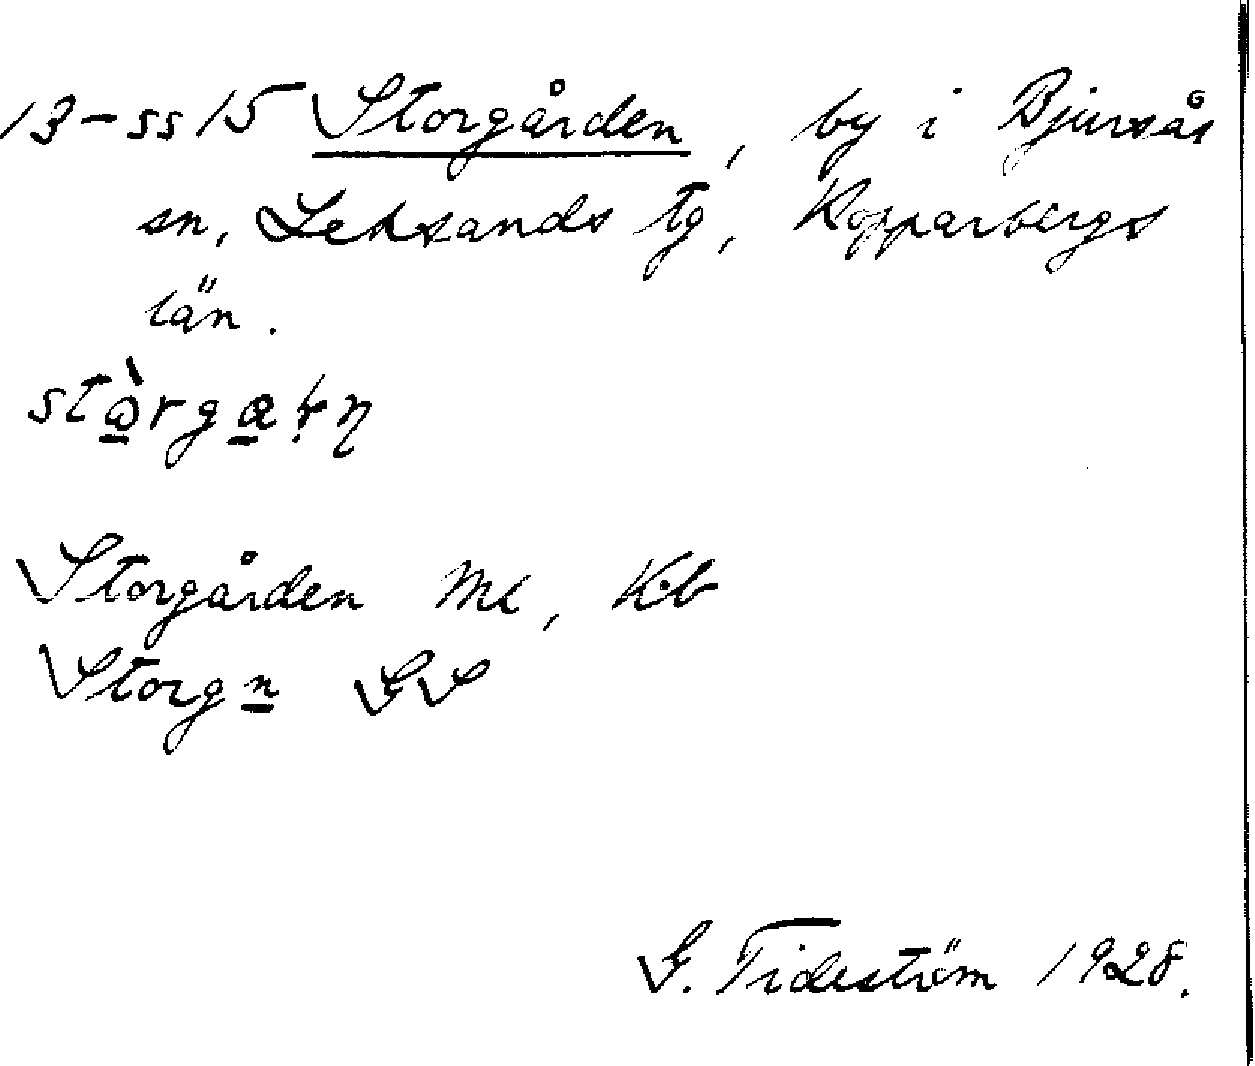 13-ss15 Storgården, by i Bjursås
sn, Leksands tg, Kopparbergs
län.
Storgården Mc, Kb
Storgn GS
G. Tideström 1928.